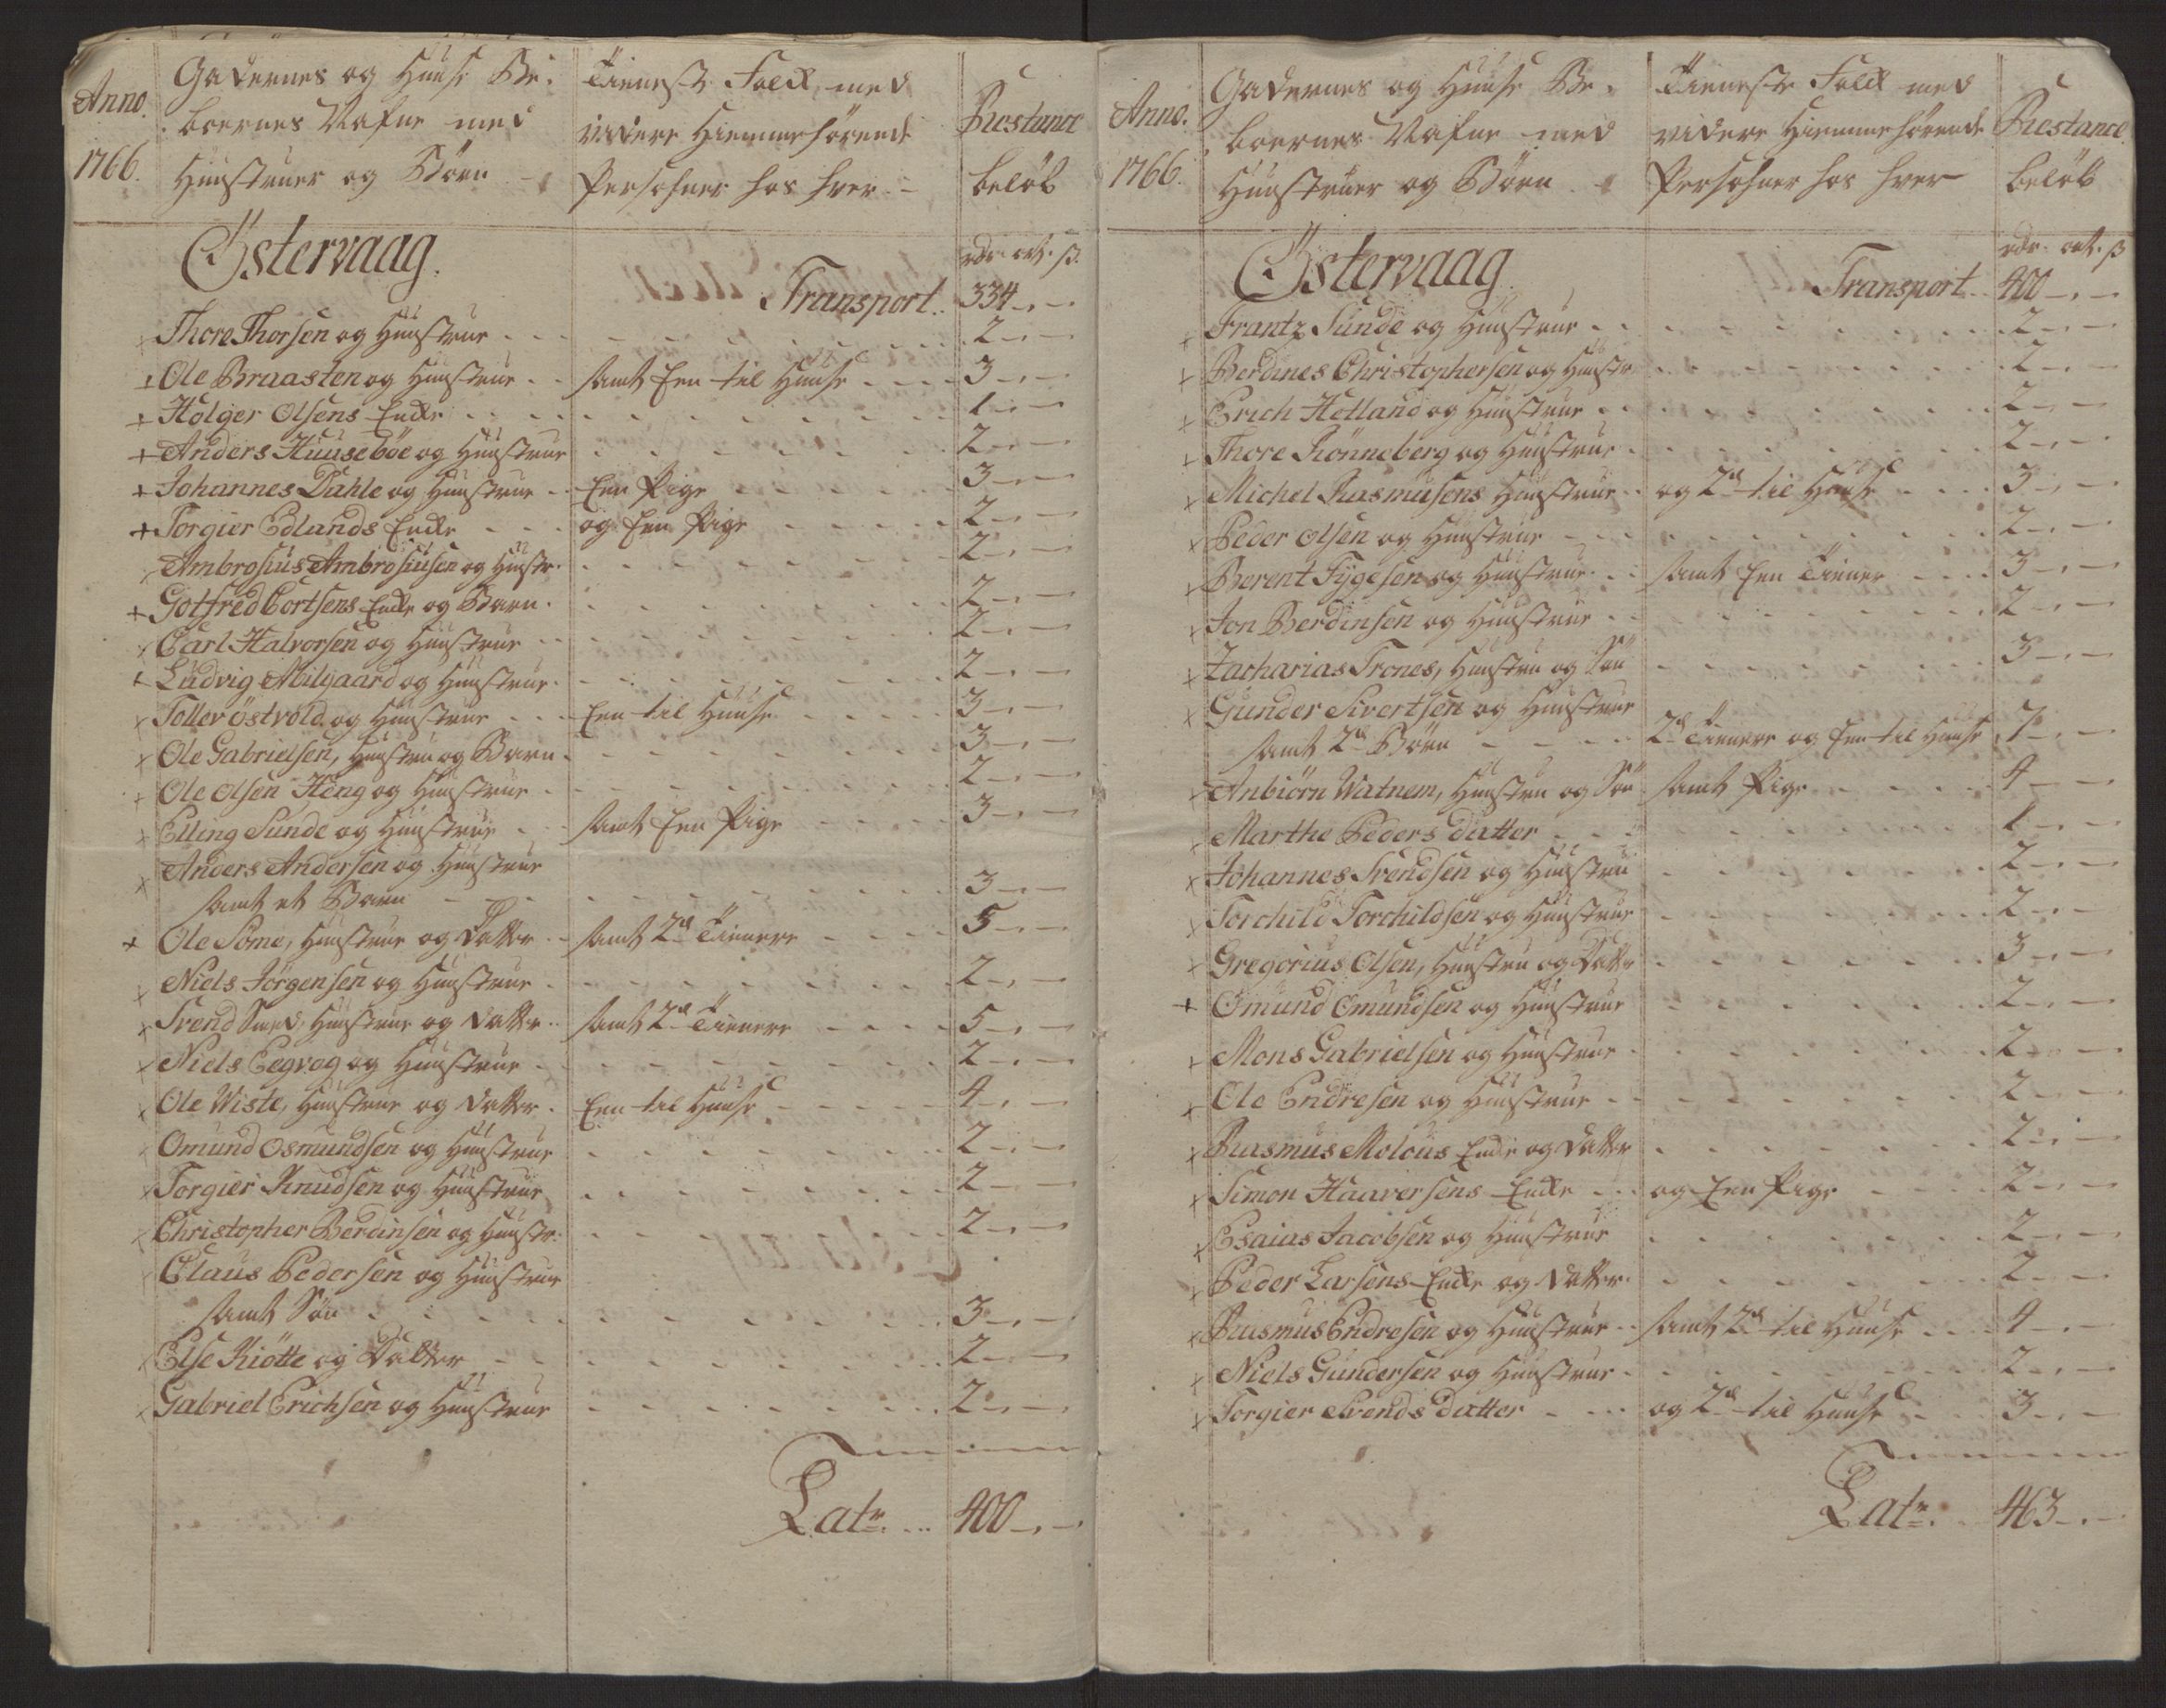 Anno.
1766.
Gadernes og Huuse Be-
boernes Nafne med
Hustruer og Börn
Tieneste Folck, med
videre Hiemmehörende
Persohner hos hver
Restance
belöb
Östervaag.
rdr. ort. s.
Transport.. 334 - . -
Thore Thorsen og Huustrue . . . 2 - . -
Ole Braasten og Huustrue . . samt Een til Huuse . . . 3 - . -
Holger Olsens Encke . . . 1 - . -
Anders Huusebøe og Huustrue . . . 2 - . -
Johannes Dahle og Huustrue . . Een Pige . . . 3 - . -
Torgier Edlands Encke . . . og Een Pige . . . 2 - . -
Ambrosius Ambrosiusen og Hustr. . . . 2 - . -
Gotfred Cortsens Encke og Barn . . . 2 - . -
Carl Halvorsen og Huustrue . . . 2 - . -
Ludvig Milgaard og Huustrue . . . 2 - . -
Toller östvold og Huustrue . . . Een til Huuse . . . 3 - . -
Ole Gabrielsen, Huustru og Barn . . . 3 - . -
Ole Olsen Höng og Huustrue . . . 2 - . -
Elling Sunde og Huustrue . . . samt Een Pige . . . 3 - . -
Anders Andersen og Huustrue
samt et Barn . . . 3 - . -
Ole Some, Huustrue og Datter . . samt 2de Tienere . . . 5 - . -
Niels Jörgensen og Huustrue . . . 2 - . -
Svend Smed, Huustrue og Datter . . samt 2de Tienere . . . 5 - . -
Niels Eegvog og Huustrue . . . 2 - . -
Ole Wiste, Huustrue og Datter . Een til Huuse . . . 4 - . -
Omund Osmundsen og Huustrue . . . 2 - . -
Torgier Knudsen og Huustrue . . . 2 - . -
Christopher Berdinsen og Huustr. . . . 2 - . -
Claus Pedersen og Huustrue
samt Sön . . . 3 - . -
Else Kiötte og Datter . . . 2 - . -
Gabriel Erichsen og Huustrue . . . 2 - . -
Latr. . . . 400 - . -
Anno.
1766.
Gadernes og Huuse Be-
boernes Nafne med
Huustruer og Börn
Tieneste Folck med
videre Hiemmehörende
Persohner hos hver
Restance
belöb
Östervaag
rdr. ort. s
Transport . . 400 - . -
Frantz Sunde og Huustrue . . . 2 - . -
Berdines Christophersen og Huustr. . . . 2 - . -
Erich Hölland og Huustrue . . . 2 - . -
Thore Rönneberg og Huustrue . . . 2 - . -
Michel Rasmusens Huustrue . . og 2de til Huuse . . . 3 - . -
Peder Olsen og Huustrue . . . 2 - . -
Berent Tygesen og Huustrue . . samt Een Tiener . . . 3 - . -
Jon Berdinsen og Huustrue . . . 2 - . -
Zacharias Trones, Huustru og Sön . . . 3 - . -
Gunder Sivertsen og Huustrue
samt 2de Börn . . . 2de Tienere og Een til Huuse 7 - . -
Anbiörn Watnem, Huustru og Sön samt Pige . . . 4 - . -
Marthe Peders datter . . . 1 - . -
Johannes Svendsen og Huustru . . . 2 - . -
Torchild Torchildsen og Huustrue . . . 2 - . -
Gregorius Olsen, Huustru og Datter . . . 3 - . -
Omund Omundsen og Huustrue . . . 2 - . -
Mons Gabrielsen og Huustrue . . . 2 - . -
Ole Endresen og Huustrue . . . 2 - . -
Rasmus Molous Encke og Datter . . . 2 - . -
Simon Haaversens Encke . . . og Een Pige . . . 2 - . -
Esaias Jacobsen og Huustrue . . . 2 - . -
Peder Larsens Encke og Datter . . . 2 - . -
Rasmus Endresen og Huustrue . . samt 2de til Huuse . . . 4 - . -
Niels Gundersen og Huustrue . . . 2 - . -
Torgier Svends datter . . . og 2de til Huuse . . . 3 - . -
Latr. . . 463 - . -